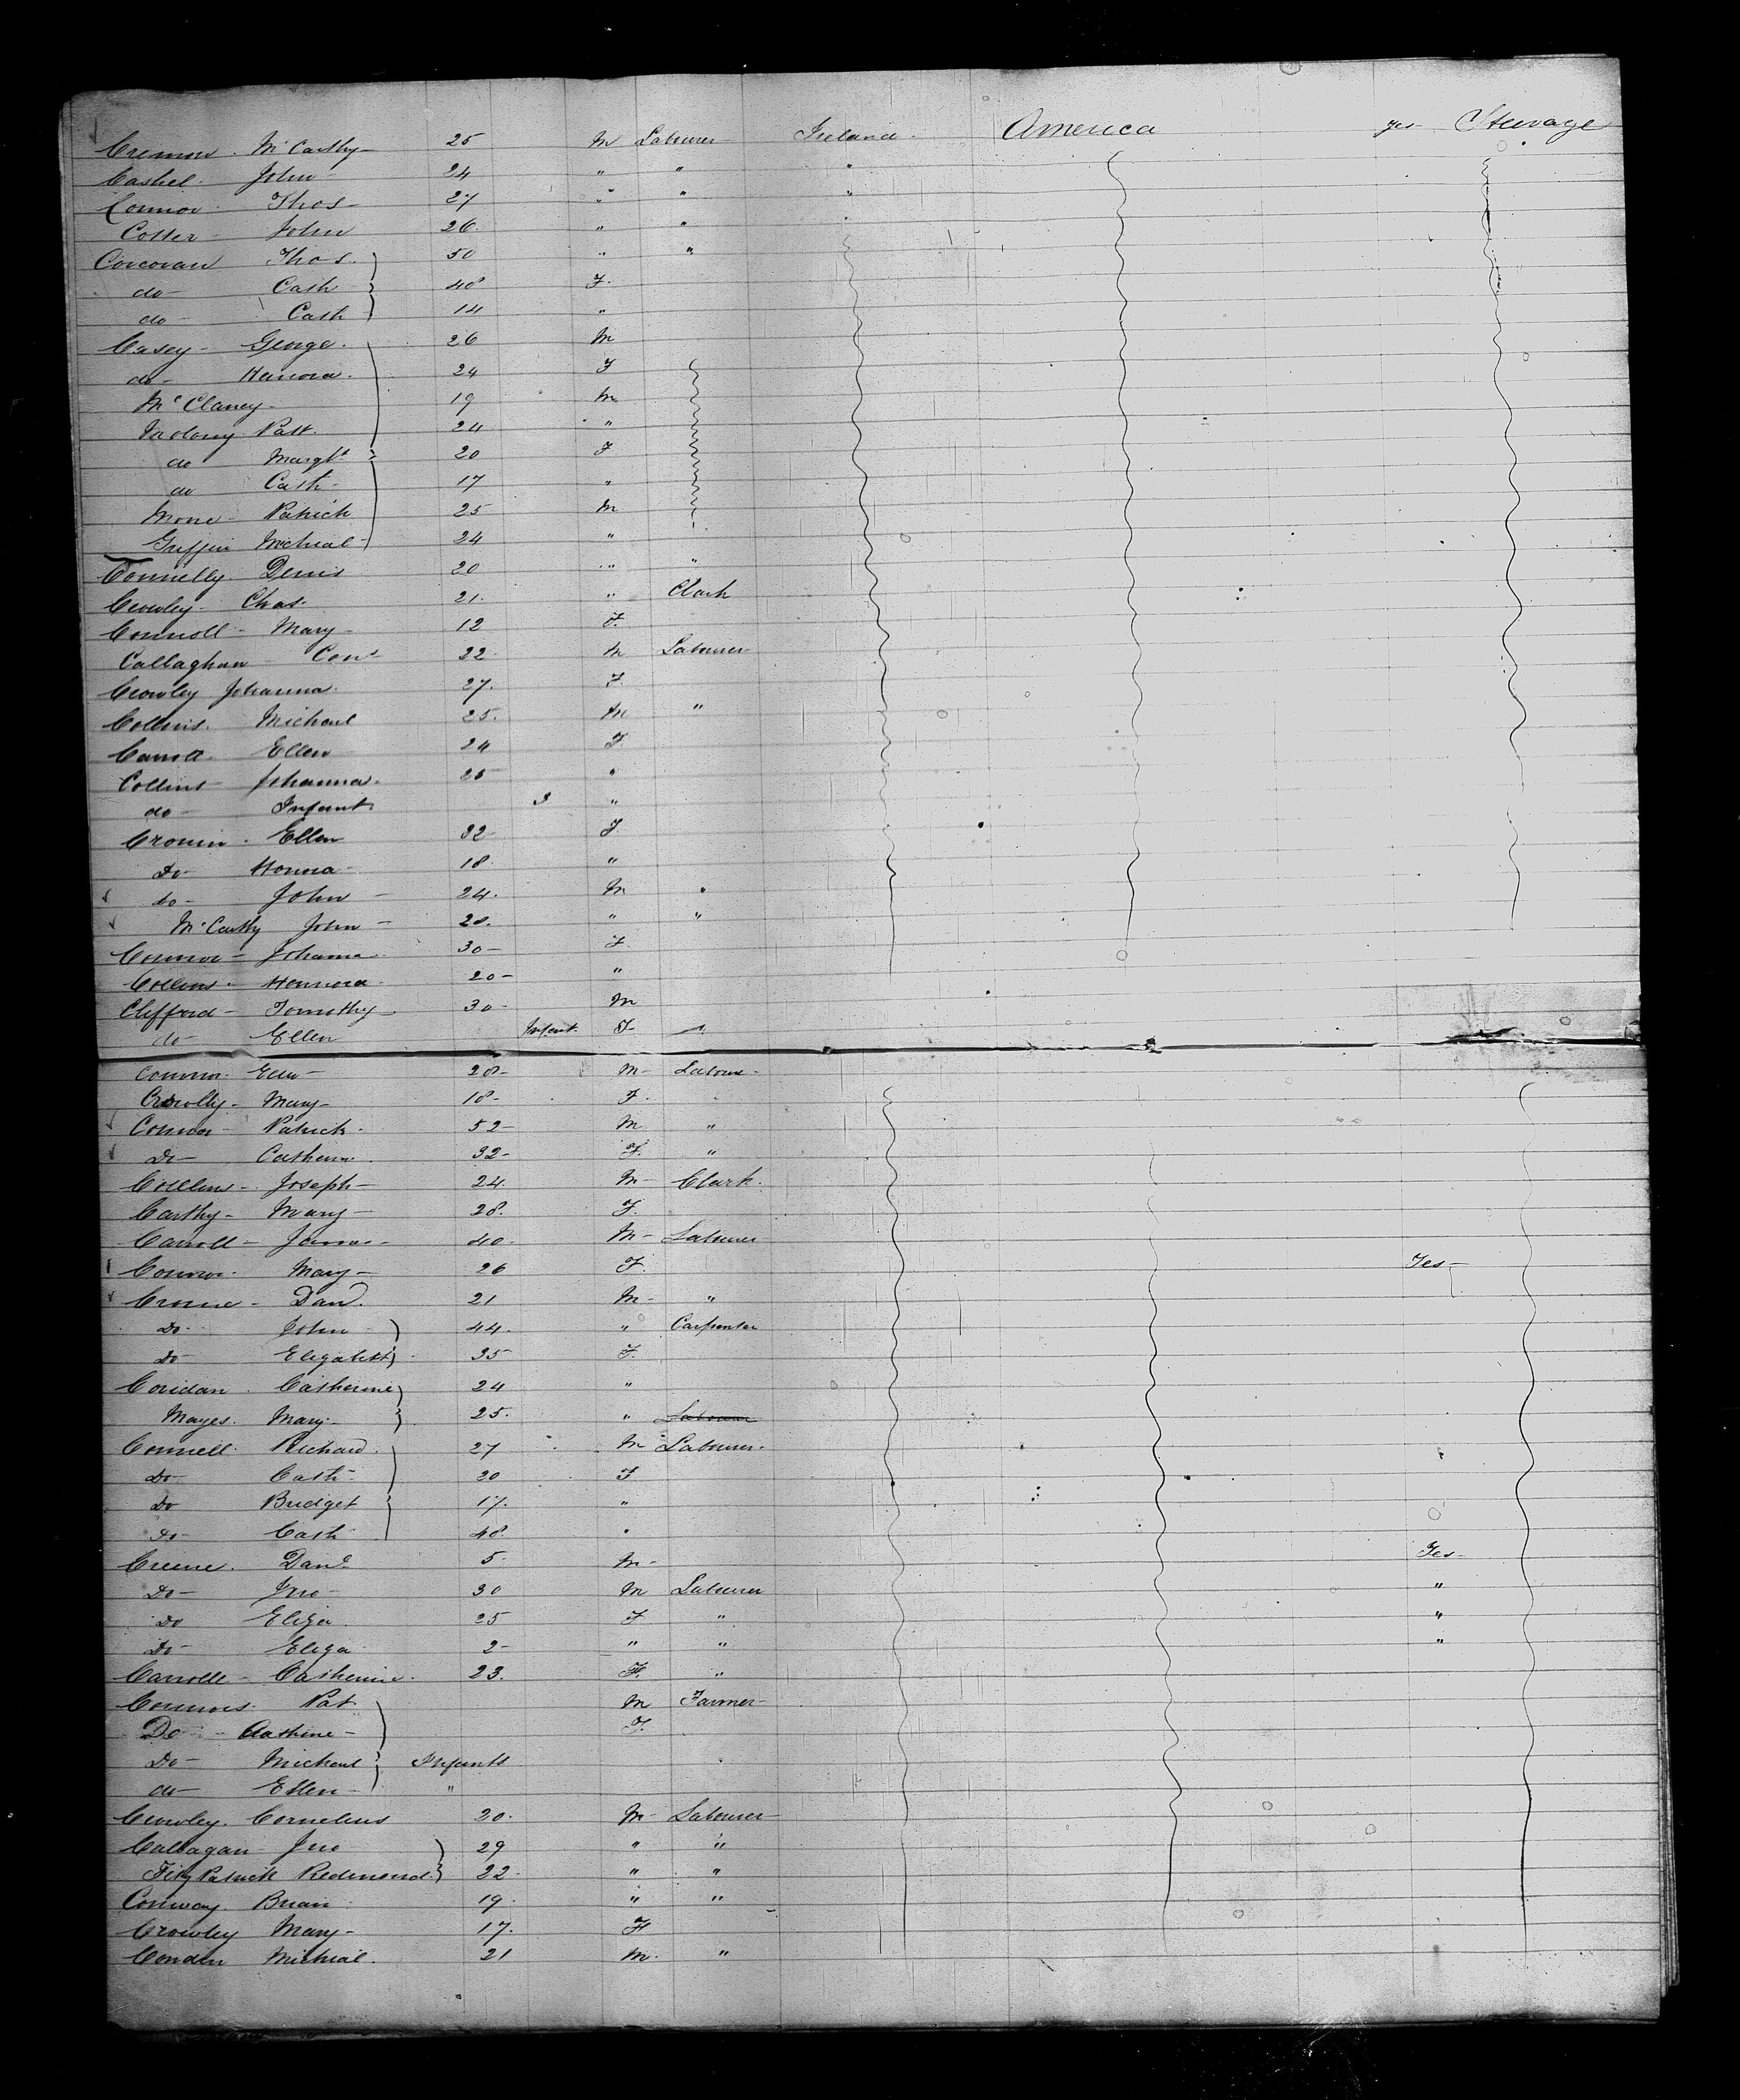 Cremow. McCarthy - 25 M Labourer Ireland - America yes - Steerage
Cashel. John - 24 " " "
Connor Thos - 27 " " "
Cotter John 26. " "
Corcoran Thos. 50 " "
do - Cath 48 F.
do - Cath 14 "
Casey - George. 26 M
do - Hanora. 24 F
McClaney - 19 M
Molony Patt. 24 "
do Margt 20 F
do Cath - 17 "
Mone - Patrick 25 M
Griffin Micheal - 24 "
Connelly. Denis 20 " "
Crowley - Chas. 21. " Clark
Connoll - Mary - 12 F.
Callaghan - Cons 22 - M Labourer
Crowley Johanna. 27. F
Collins. Michael 25. M "
Carroll. Ellen 24 F
Collins Johanna. 25 "
do - Infant. "
Cronin. Ellen 32 - F.
Do - Honora - 18 "
do - John - 24. M "
McCarthy John - 28. " "
Connor - Johanna 30 - F
Collins. Honnora - 20 - "
Clifford - Tomothy - 30 - M
do - Ellen Infant. F -
Connor. Ellen - 28 - M - Laboure -
Mary - 18 - F.
Connor - Patrick. 52 - M "
Do - Catherine. 32 - F. "
Collins - Joseph - 24. M - Clark.
Carthy - Mary - 28. F.
Carroll - James - 40 - M - Labourer
Connor. Mary - 26 F. Yes -
Crone - Dan. 21 M - "
Do - John 44. " Carpenter
Do - Elizabeth 35 F.
Coridan. Catherine 24 "
Mayes. Mary - 25. " Labourer
Connell. Richard. 27 M Labourer.
Do - Cath - 20 F
Do Bridget 17. "
Do - Cath 48. "
Creene. Danl 5 - M - Yes -
Do - Jno - 30 M Labourer "
Do Eliza. 25 F " "
Do - Eliza 2 - " " "
Carrolle - Catherine. 23. F. "
Connors. Pat. M Farmer -
Do - Cathrine - F.
Do - Micheal Infants
do - Ellen - "
Crowley. Cornelius 20. M - Labourer -
Callagan - Jno 29 " "
FitzPatrick Redmond. 22. " "
Conway. Brian 19. " "
Crowley Mary - 17. F
Conden Micheal. 21 M. "